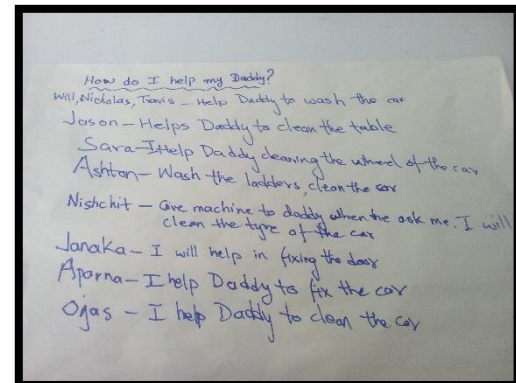 How do I help my Daddy?
Will, Nicholas, Travis - Help Daddy to wash the car
Jason - Helps Daddy to clean the table
Sara - I Help Daddy cleaning the wheel of the car
Ashton - Wash the ladders, clean the car
Nishchit - Give machine to daddy when he ask me. I will
clean the tyre of the car
Janaka - I will help in fixing the door
Aparna - I help Daddy to fix the car
Ojas - I help Daddy to clean the car